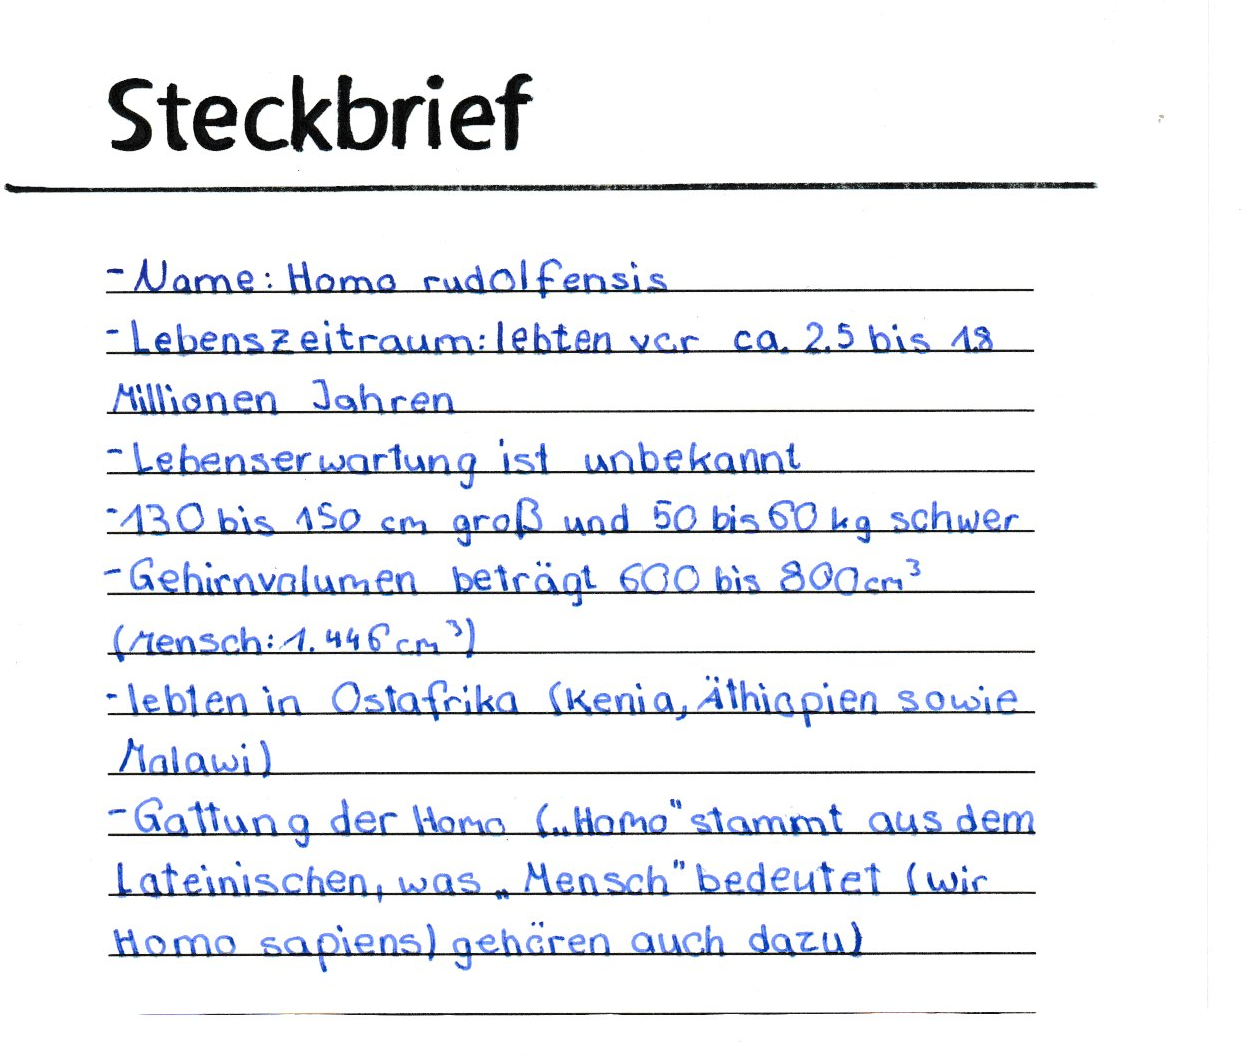 Steckbrief
- Name: Homo rudolfensis
- Lebenszeitraum: lebten vor ca. 2,5 bis 1,8
Millionen Jahren
- Lebenserwartung ist unbekannt
- 130 bis 150 cm groß und 50 bis 60 kg schwer
- Gehirnvolumen beträgt 600 bis 800 cm³
(Mensch: 1.446 cm³)
- lebten in Ostafrika (Kenia, Äthiopien sowie
Malawi)
- Gattung der Homo („Homo" stammt aus dem
Lateinischen, was „Mensch" bedeutet (wir
Homo sapiens) gehören auch dazu)